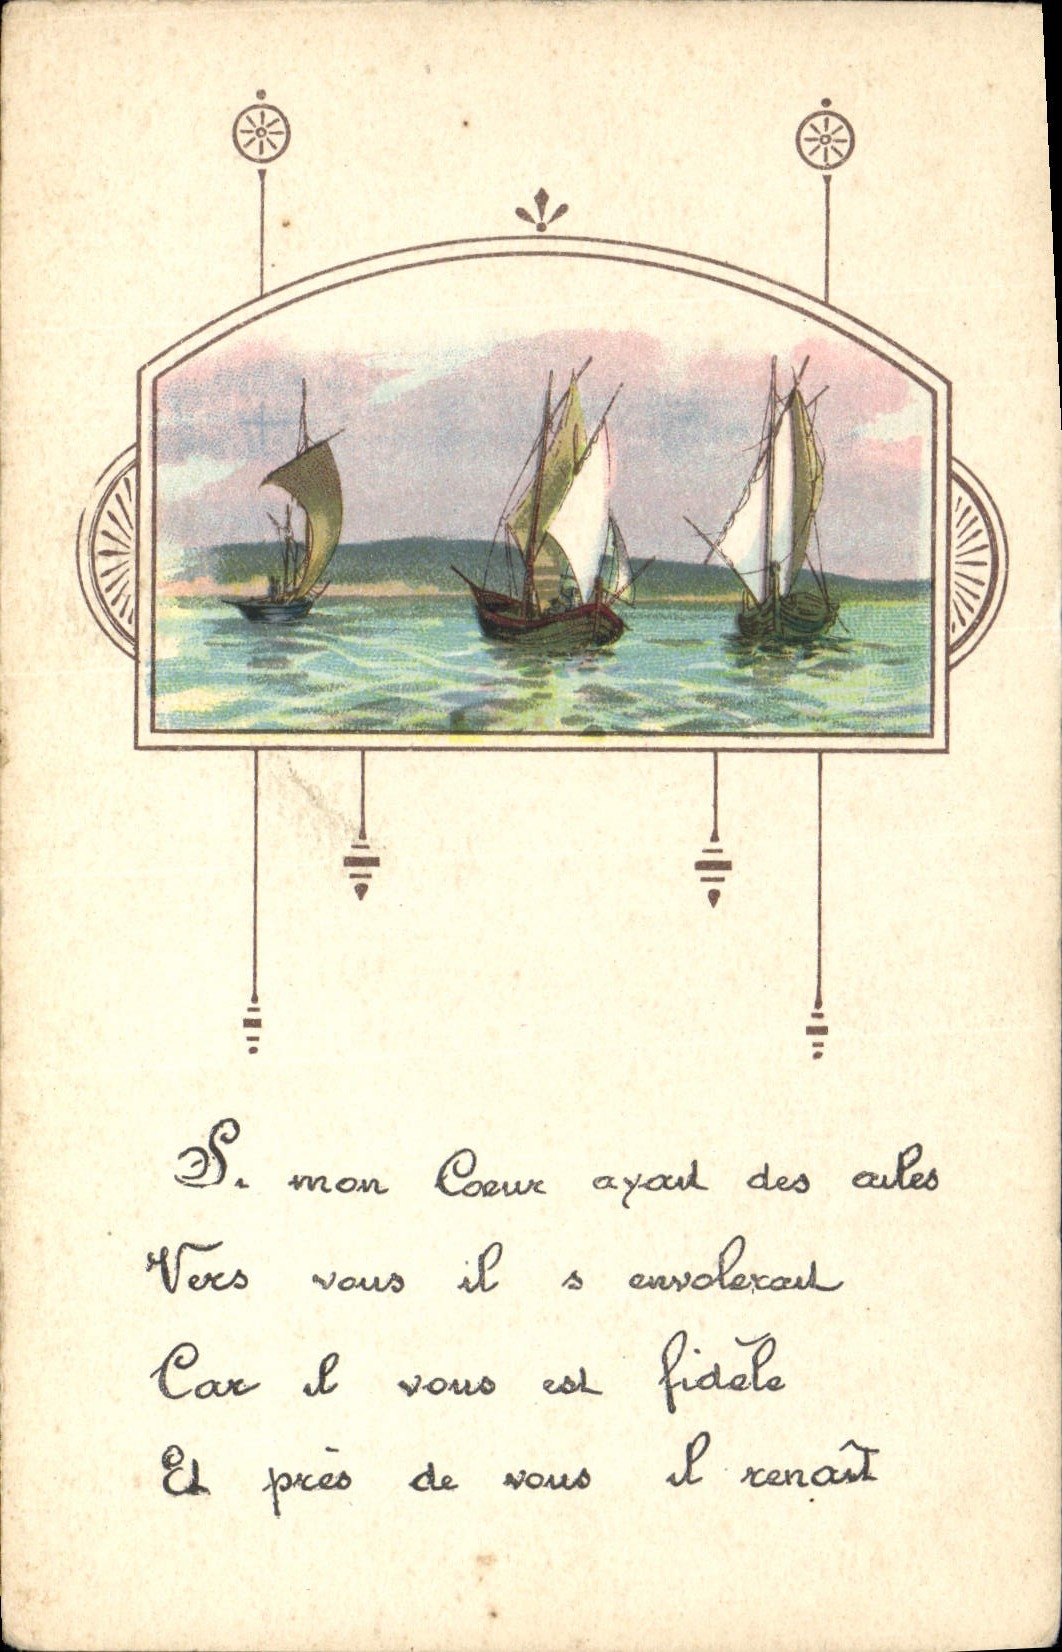 Si mon Coeur ayait des ailes
Vers vous il s envolerait
Car il vous est fidèle
Et près de vous il renaît